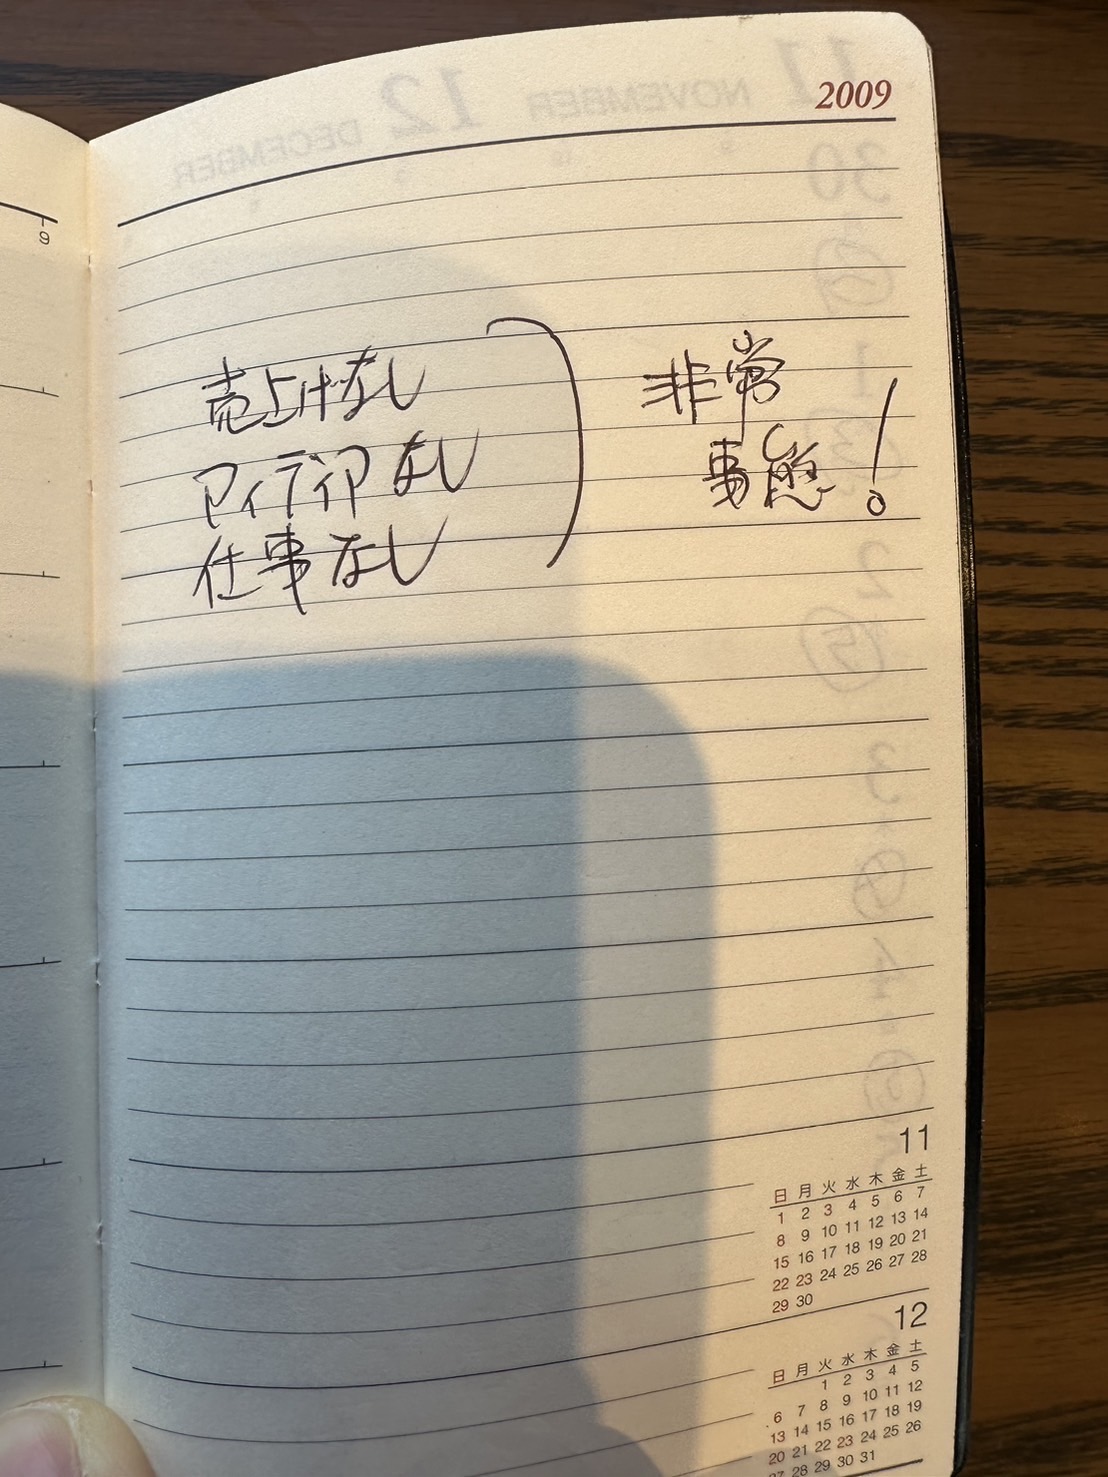 2009
売上げなし
アイデアなし
仕事なし
非常
事態!
9
11
日 月 火 水 木 金 土
1 2 3 4 5 6 7
8 9 10 11 12 13 14
15 16 17 18 19 20 21
22 23 24 25 26 27 28
29 30
12
日 月 火 水 木 金 土
1 2 3 4 5
6 7 8 9 10 11 12
13 14 15 16 17 18 19
20 21 22 23 24 25 26
27 28 29 30 31